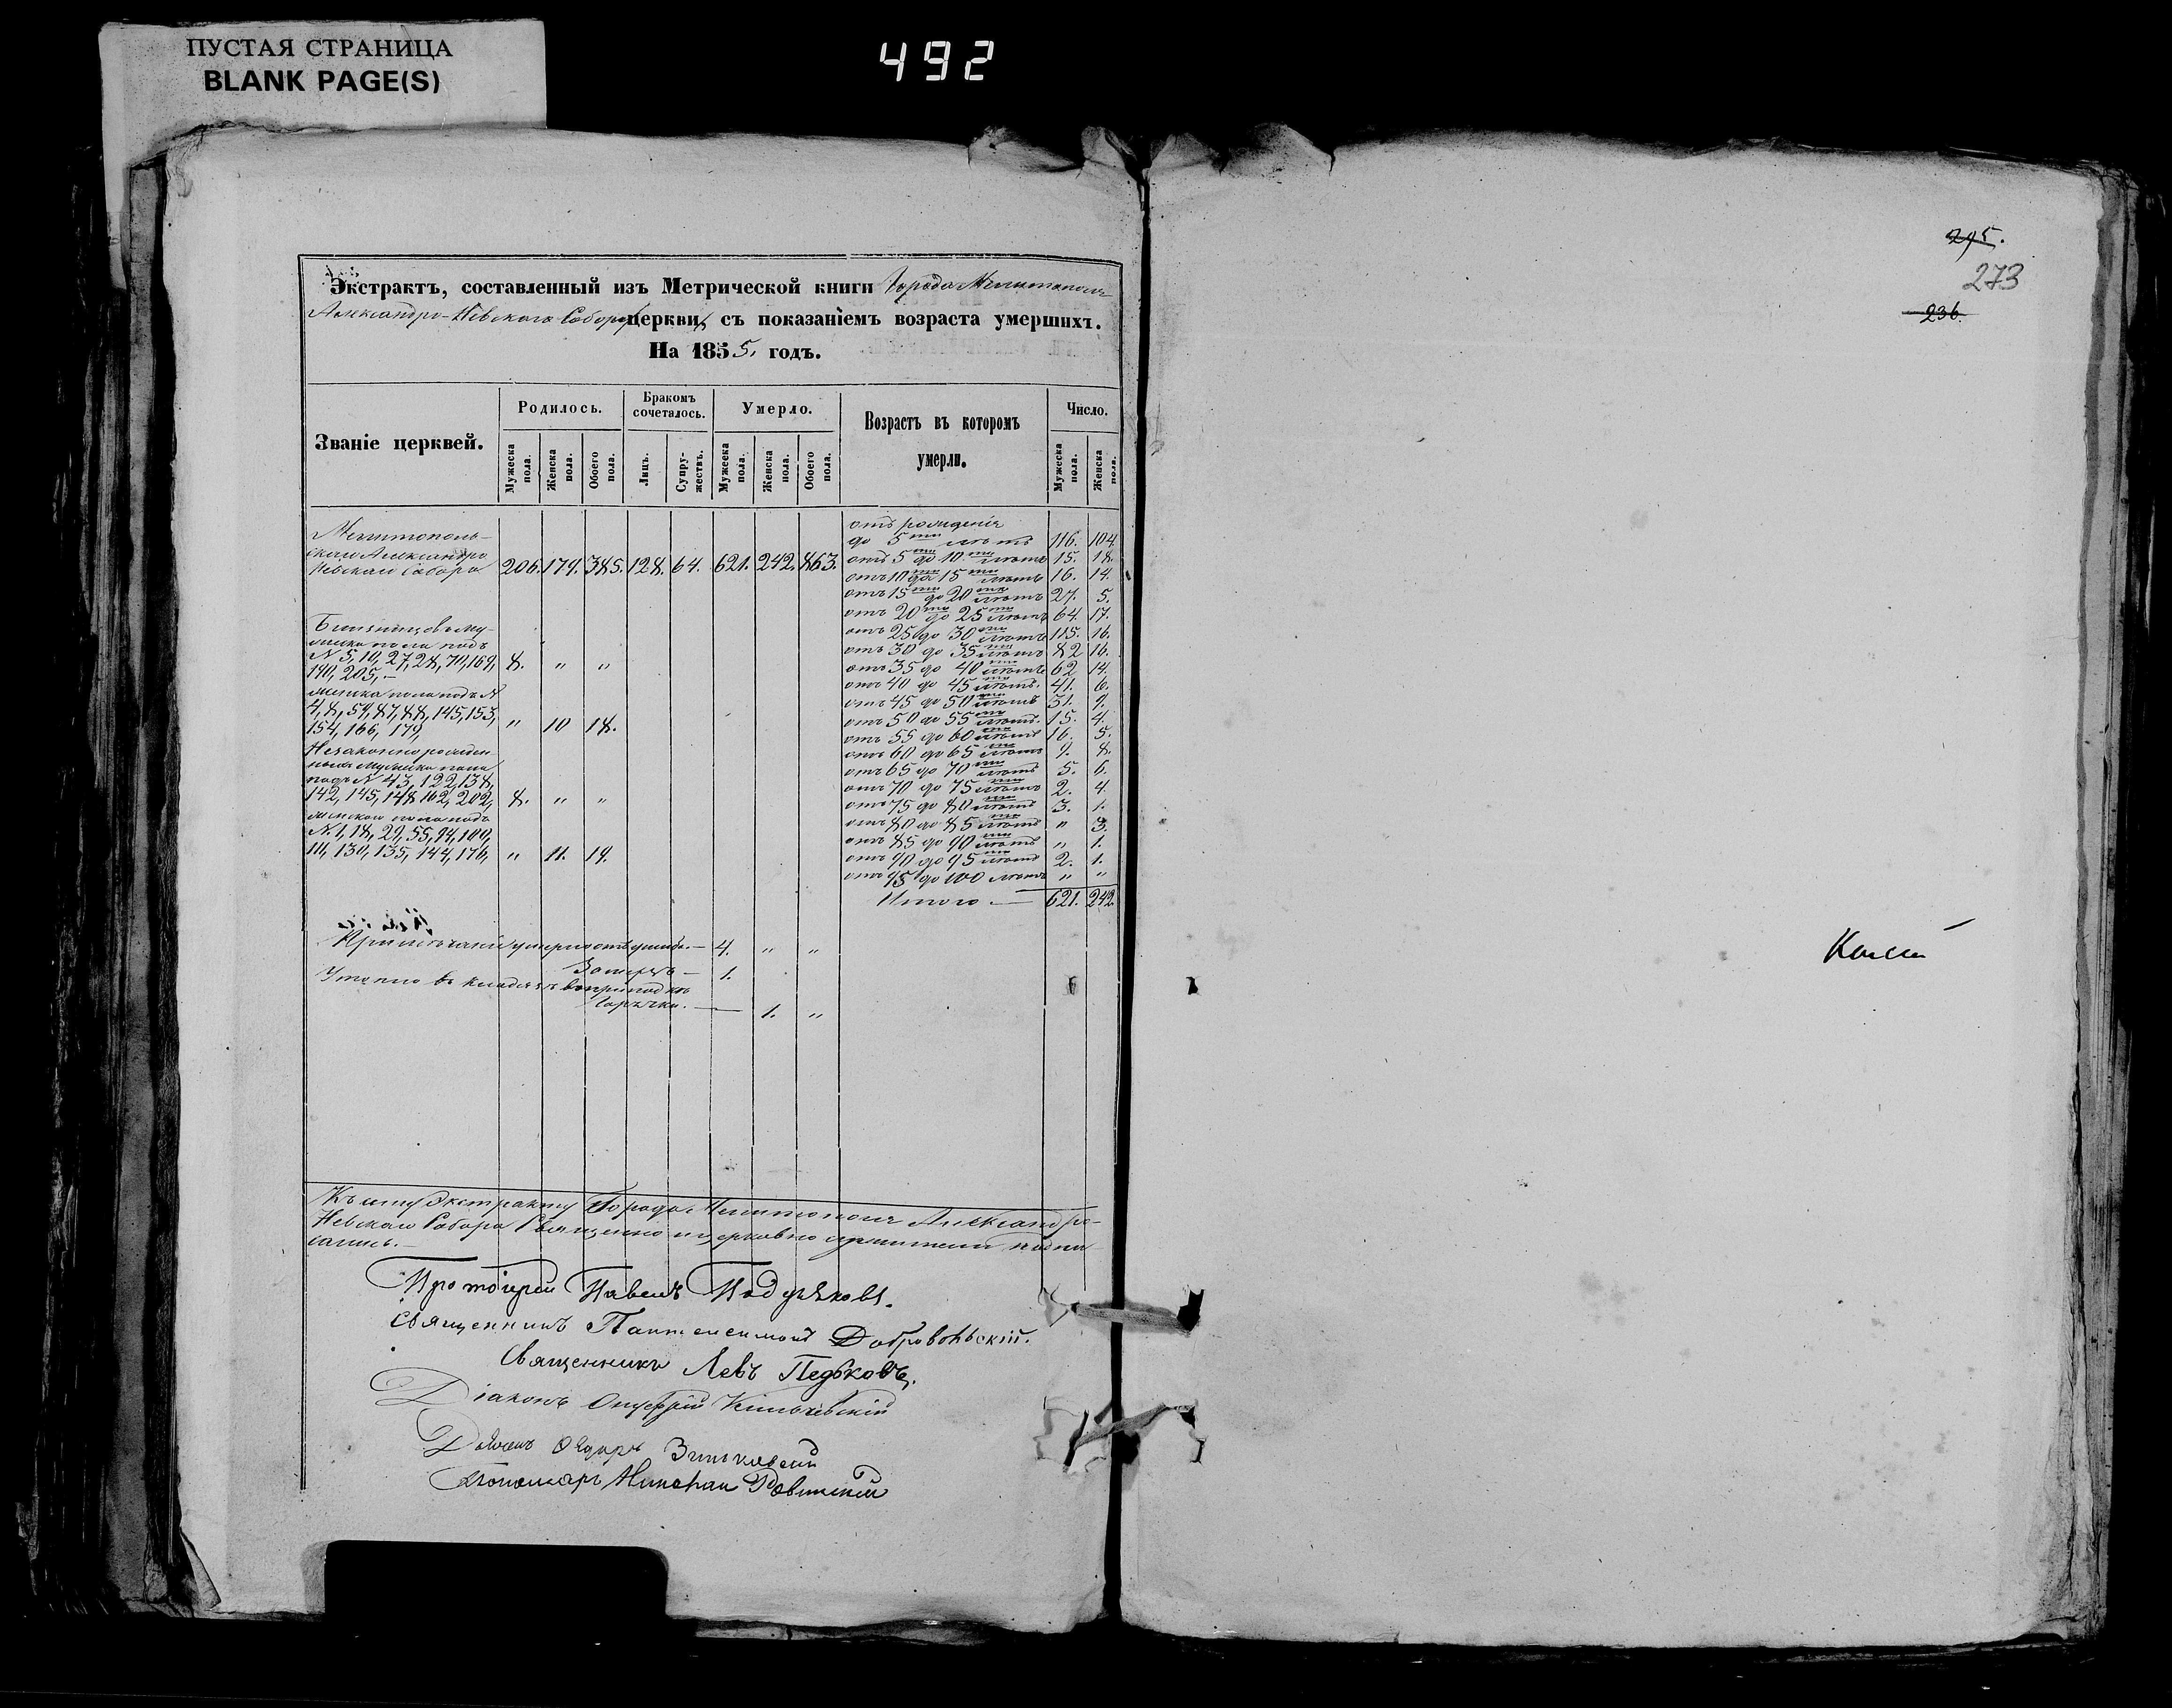 ПУСТАЯ СТРАНИЦА
BLANK PAGE(S)
492
Экстрактъ, составленный изъ Метрической книги Города Мелитополя
Александро-Невскаго Собора церкви, съ показаніемъ возраста умершихъ.
На 1855. годъ.
Званіе церквей.
Родилось.
Бракомъ сочеталось.
Умерло.
Возрастъ въ которомъ умерли.
Число.
Мужеска пола.
Женска пола.
Обоего пола.
Лицъ.
Супружествъ.
Мужеска пола.
Женска пола.
Обоего пола.
Мужеска пола.
Женска пола.
Мелитополь-
скаго Александро
Невскаго Собора 206. 179. 385. 128. 64. 621. 242. 863.
Близнецовъ му-
жеска пола подъ
N 5, 10, 27, 28, 70, 169, 8. " "
190, 205, -
женска пола подъ N
4, 8, 59, 87, 88, 145, 153,
154, 166, 179, " 10 18.
Незаконнорожден
ныхъ мужеска пола
подъ N 43, 122, 138,
142, 145, 148, 162, 202, 8. " "
женска пола подъ
N. 1, 18, 29, 55, 94, 109,
111, 130, 135, 144, 176, " 11. 19.
отъ рожденія
до 5ти лѣтъ 116. 104.
отъ 5 до 10ти лѣтъ 15. 18.
отъ 10ти до 15ти лѣтъ 16. 14.
отъ 15ти до 20ти лѣтъ 27. 5.
отъ 20ти до 25ти лѣтъ 64. 17.
отъ 25 до 30ти лѣтъ 115. 16.
отъ 30 до 35ти лѣтъ 82 16.
отъ 35 до 40ти лѣтъ 62 14.
отъ 40 до 45ти лѣтъ. 41. 6.
отъ 45 до 50ти лѣтъ 31. 9.
отъ 50 до 55ти лѣтъ. 15. 4.
отъ 55 до 60ти лѣтъ 16. 5.
отъ 60 до 65ти лѣтъ 9. 8.
отъ 65 до 70ти лѣтъ 5. 6.
отъ 70 до 75ти лѣтъ 2. 4.
отъ 75 до 80ти лѣтъ 3. 1.
отъ 80 до 85ти лѣтъ " 3.
отъ 85 до 90ти лѣтъ " 1.
отъ 90 до 95ти лѣтъ 2. 1.
отъ 95 до 100 лѣтъ " "
Итого. — 621. 242.
Примѣчаніе умерло отъ ушиба. — 4. " "
Замерзъ — 1.
Утопло въ въ припадкѣ
Горячки. — 1. "
Къ сему Экстракту Города Мелитополя Александро-
Невскаго Собора Священно и церковно служители подпи-
сались. —
Протоіерей Павелъ
Священникъ Пантелеимонъ Добровольскій.
Священникъ Левъ Педьковъ.
Діаконъ Онуфрій
Ѳедоръ Зиньковскій
Пономарь
295.
273
236.